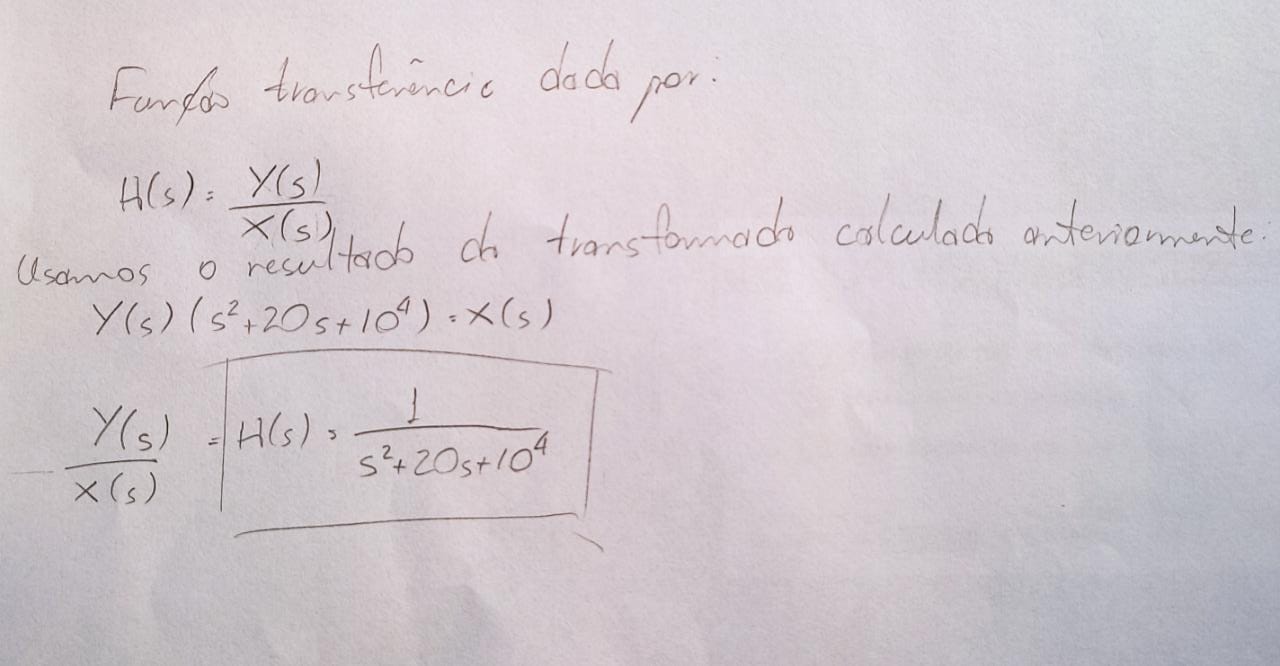 Função transferência dada por:
H(s) = Y(s)/X(s)
Usamos o resultado da transformada calculada anteriormente:
Y(s) (s²+20s+10⁴) = X(s)
Y(s)/X(s) = H(s) = 1/(s²+20s+10⁴)